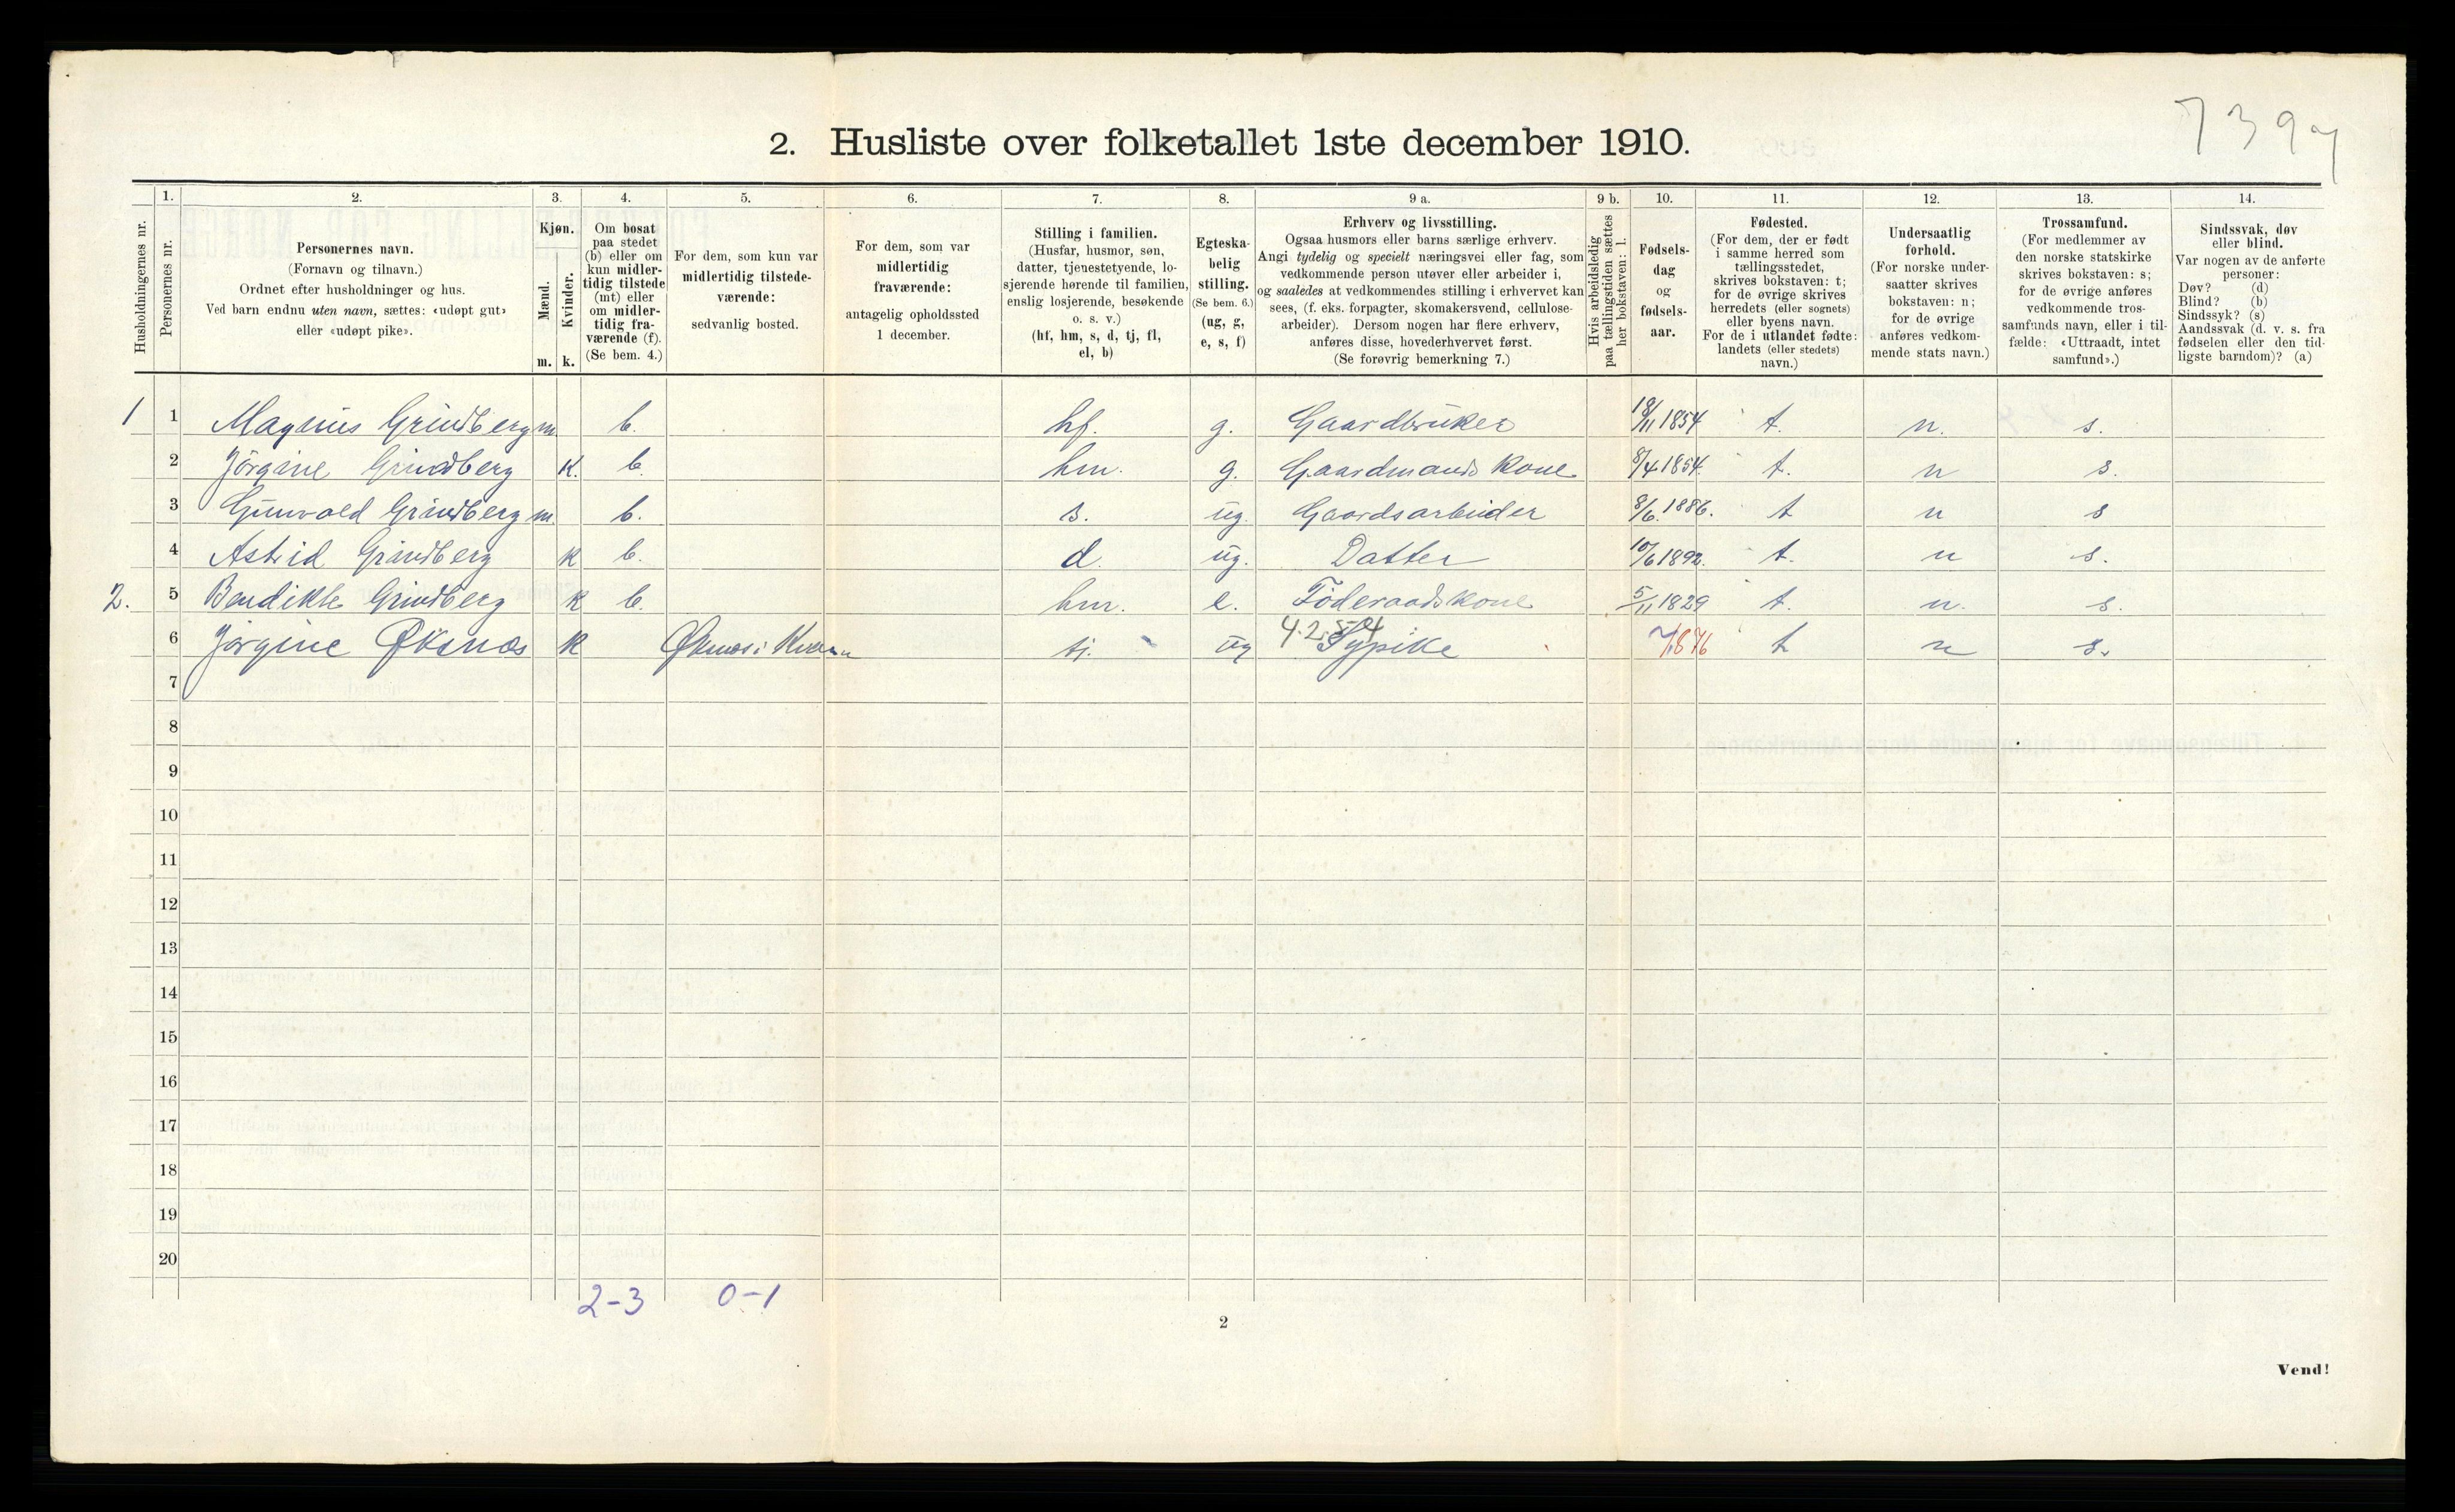 7397
2. Husliste over folketallet 1ste december 1910.
Husholdningernes nr.
1.
Personernes nr.
2.
Personernes navn.
(Fornavn og tilnavn.)
Ordnet efter husholdninger og hus.
Ved barn endnu uten navn, sættes: «udøpt gut»
eller «udøpt pike».
3.
Kjøn.
Mænd.
Kvinder.
m. k.
4.
Om bosat
paa stedet
(b) eller om
kun midler-
tidig tilstede
(mt) eller
om midler-
tidig fra-
værende (f).
(Se bem. 4.)
5.
For dem, som kun var
midlertidig tilstede-
værende:
sedvanlig bosted.
6.
For dem, som var
midlertidig
fraværende:
antagelig opholdssted
1 december.
7.
Stilling i familien.
(Husfar, husmor, søn,
datter, tjenestetyende, lo-
sjerende hørende til familien,
enslig losjerende, besøkende
o. s. v.)
(hf, hm, s, d, tj, fl,
el, b)
8.
Egteska-
belig
stilling.
(Se bem. 6.)
(ug, g,
e, s, f)
9 a.
Erhverv og livsstilling.
Ogsaa husmors eller barns særlige erhverv.
Angi tydelig og specielt næringsvei eller fag, som
vedkommende person utøver eller arbeider i,
og saaledes at vedkommendes stilling i erhvervet kan
sees, (f. eks. forpagter, skomakersvend, cellulose-
arbeider). Dersom nogen har flere erhverv,
anføres disse, hovederhvervet først.
(Se forøvrig bemerkning 7.)
9 b.
Hvis arbeidsledig
paa tællingstiden sættes
her bokstaven: l.
10.
Fødsels-
dag
og
fødsels-
aar.
11.
Fødested.
(For dem, der er født
i samme herred som
tællingsstedet,
skrives bokstaven: t;
for de øvrige skrives
herredets (eller sognets)
eller byens navn.
For de i utlandet fødte:
landets (eller stedets)
navn.)
12.
Undersaatlig
forhold.
(For norske under-
saatter skrives
bokstaven: n;
for de øvrige
anføres vedkom-
mende stats navn.)
13.
Trossamfund.
(For medlemmer av
den norske statskirke
skrives bokstaven: s;
for de øvrige anføres
vedkommende tros-
samfunds navn, eller i til-
fælde: «Uttraadt, intet
samfund».)
14.
Sindssvak, døv
eller blind.
Var nogen av de anførte
personer:
Døv? (d)
Blind? (b)
Sindssyk? (s)
Aandssvak (d. v. s. fra
fødselen eller den tid-
ligste barndom)? (a)
1 1 Magnus Grindberg m b. hf. g. Gaardbruker 18/11 1854 t. n. s.
2 Jörgine Grindberg k. b. hm. g. Gaardmands kone 8/4 1854. t. n s.
3 Gunvald Grindberg m. b. s. ug. Gaardsarbeider 8/6. 1886. t n s
4 Astrid Grindberg k b. d. ug. Datter 10/6 1892. t. n s.
2. 5 Bendikte Grindberg k b. hm. e. Föderaadskone 5/11 1829 t. n. s.
6 Jörgine Øksnæs k Øksnæs i Kvam tj. ug 4.2.5-4 Sypike 1876 t n s.
7
8
9
10
11
12
13
14
15
16
17
18
19
20
2-3 0-1
2
Vend!